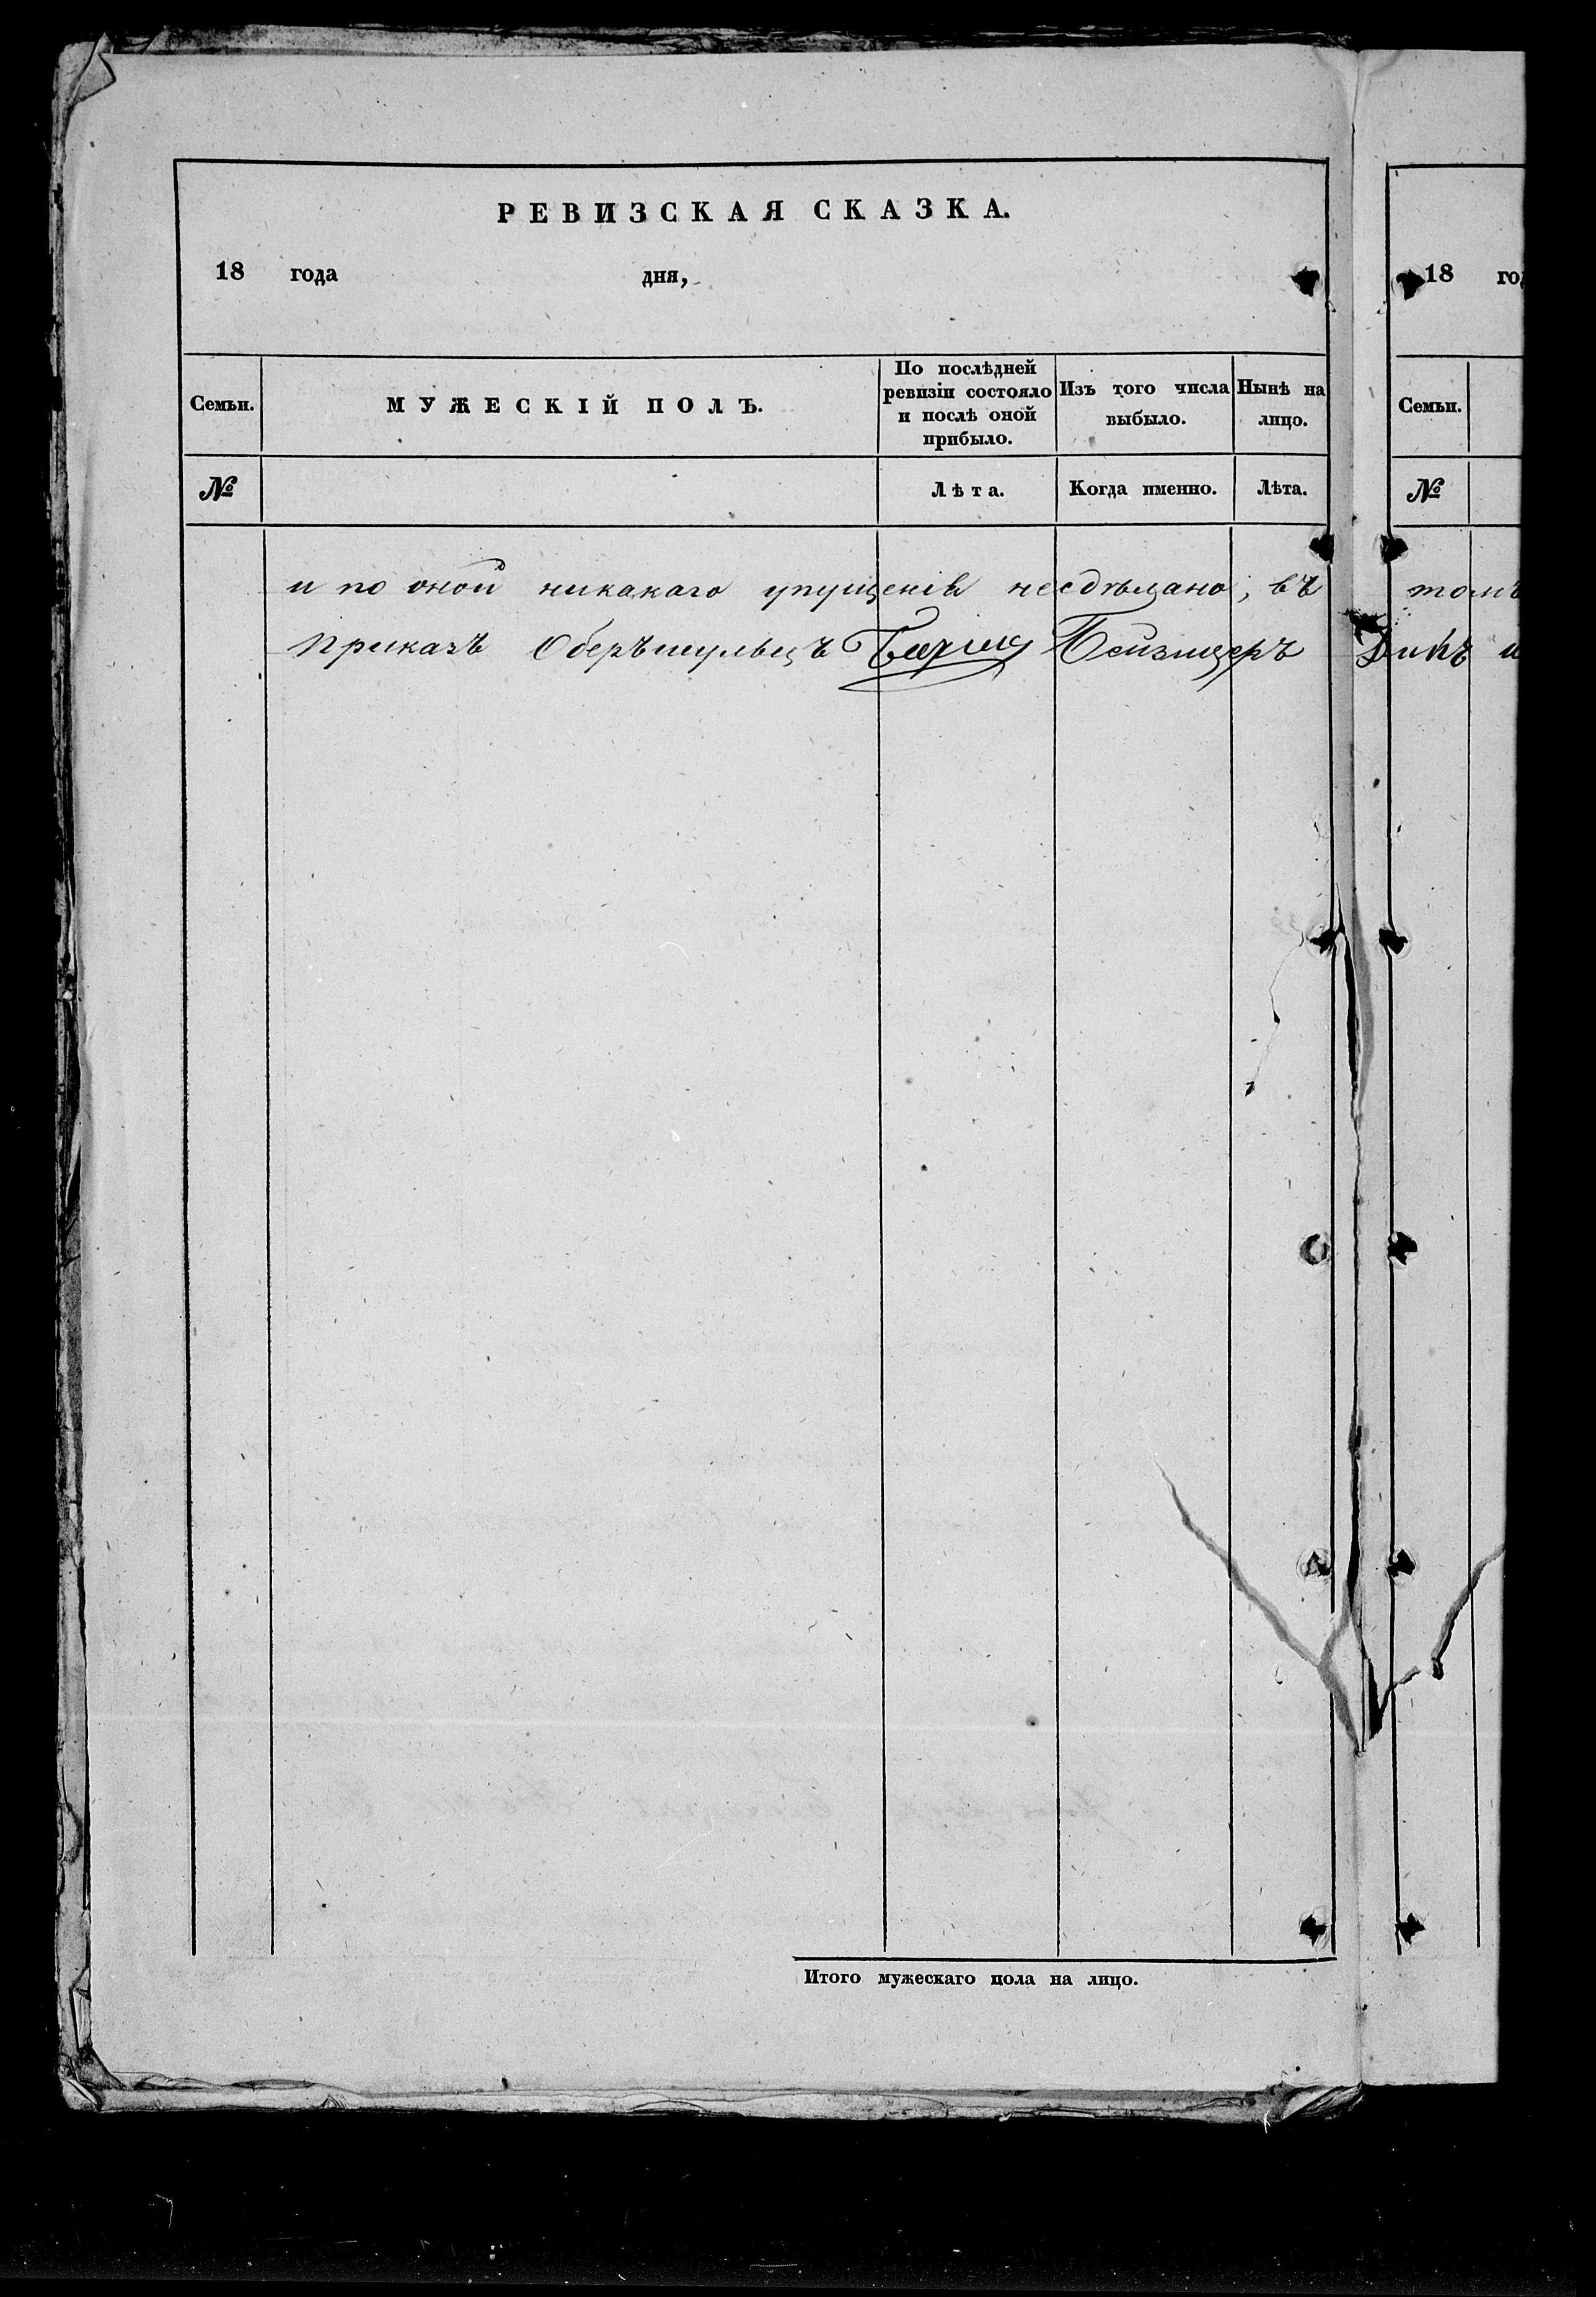 РЕВИЗСКАЯ СКАЗКА.
18 года дня,
Семьи.
МУЖЕСКІЙ ПОЛЪ.
По послѣдней
ревизіи состояло
и послѣ оной
прибыло.
Изъ того числа
выбыло.
Нынѣ на
лицо.
№
Лѣта.
Когда именно.
Лѣта.
и по оной никакаго упущенія несдѣлано; въ томъ
Приказъ Оберъшульцъ Бейзицеръ
Итого мужескаго пола на лицо.
18 год
Семьи.
№